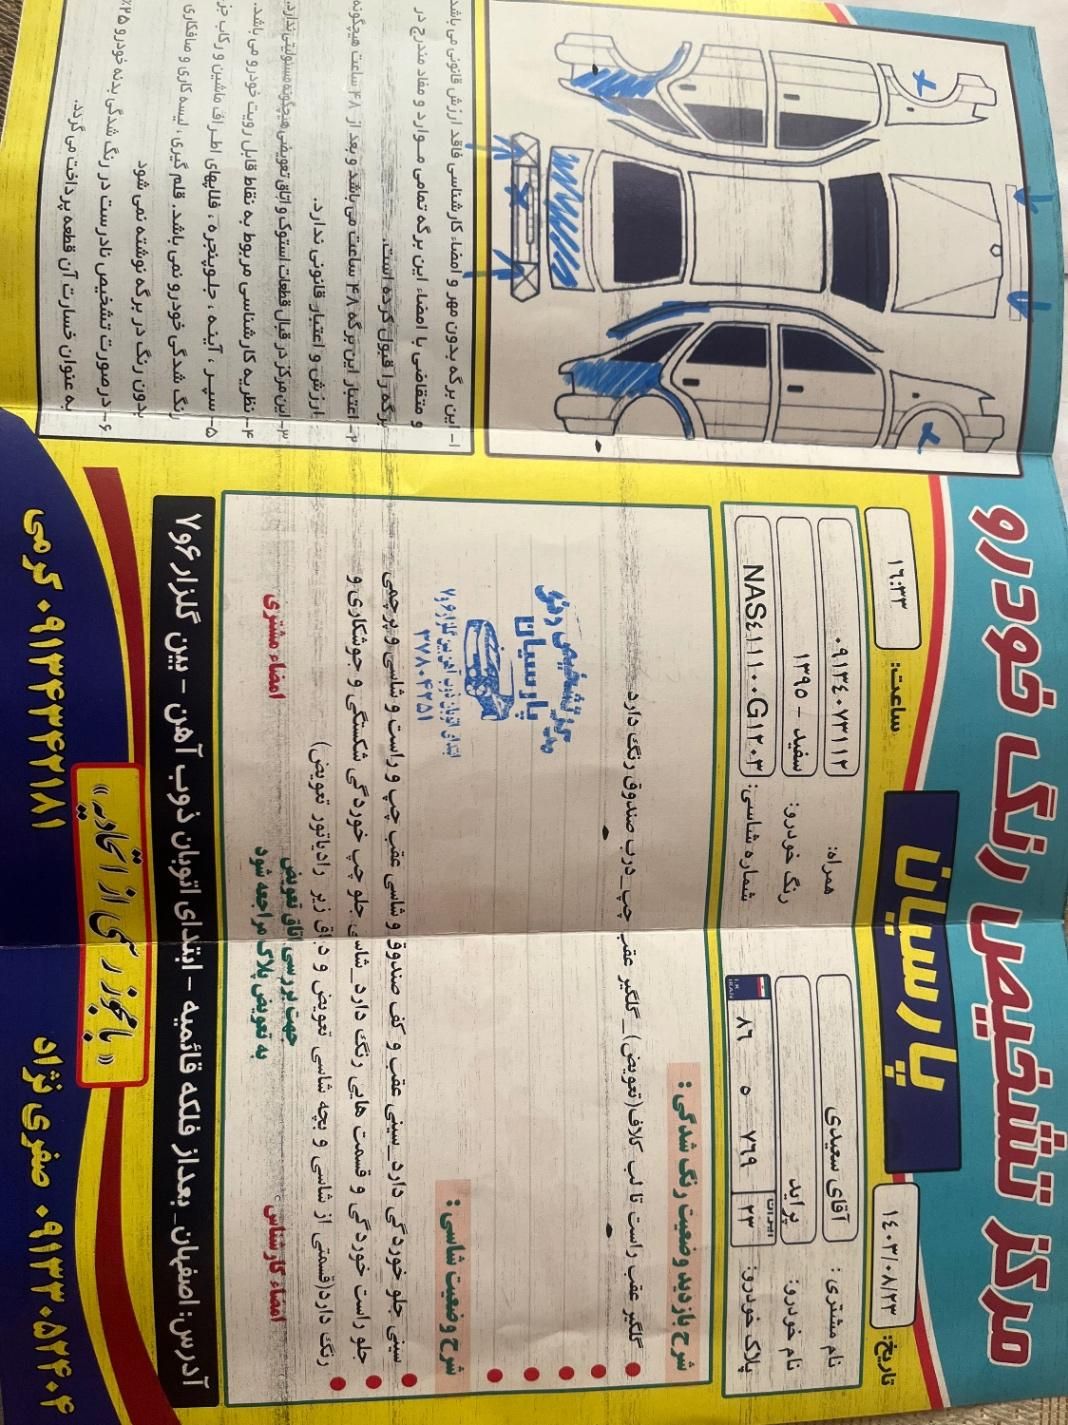 مرکز تشخیص رنگ خودرو
پارسیان
تاریخ: ۱۴۰۳/۰۸/۲۳
ساعت: ۱۶:۳۳
نام مشتری : آقای سعیدی
همراه: ۰۹۱۳۴۰۷۳۱۱۲
نام خودرو: پراید
رنگ خودرو: سفید - ۱۳۹۵
پلاک خودرو: ایران ۲۳ ۷۶۹ ۵ ۸۶
I.R.
IRAN
شماره شاسی: NAS۴۱۱۱۰۰G۱۲۰۳
شرح بازدید وضعیت رنگ شدگی :
گلگیر عقب راست تا لب کلاف(تعویض)_گلگیر عقب چپ_درب صندوق رنگ دارد
شرح وضعیت شاسی :
سینی جلو خوردگی دارد_سینی عقب و کف صندوق و شاسی عقب چپ و راست و شاسی و پرچمی
جلو راست خوردگی و قسمت هایی رنگ دارد_شاسی جلو چپ خوردگی شکستگی و جوشکاری و
رنگ دارد(قسمتی از شاسی و بچه شاسی تعویض و دیاق زیر رادیاتور تعویض)
مرکز تشخیص رنگ
پارسیان
ابتدای اتوبان ذوب آهن بین گلزار ۶ و ۷
۳۷۸۰۴۲۵۱
امضاء کارشناس
جهت بررسی اتاق تعویض
به تعویض پلاک مراجعه شود
امضاء مشتری
آدرس: اصفهان_ بعداز فلکه قائمیه - ابتدای اتوبان ذوب آهن - بین گلزار ۶و۷
« با مجوز رسمی از اتحادیه »
۰۹۱۳۳۰۵۲۴۰۴ صفری نژاد
۰۹۱۳۴۳۴۴۲۱۸۱ کرمی
۱- این برگه بدون مهر و امضاء کارشناسی فاقد ارزش قانونی می باشد
و متقاضی با امضاء این برگه تمامی موارد و مفاد مندرج در
برگه را قبول کرده است.
۲- اعتبار این برگه ۴۸ ساعت می باشد و بعد از ۴۸ ساعت هیچگونه
ارزش و اعتبار قانونی ندارد.
۳- این مرکز در قبال قطعات استوک و اتاق تعویضی هیچگونه مسئولیتی ندارد.
۴- نظریه کارشناسی مربوط به نقاط قابل رویت خودرو می باشد.
۵- سپر ، آینه ، جلوپنجره ، فلاپهای اطراف ماشین و رکاب جز
رنگ شدگی خودرو نمی باشد. قلم گیری ، لیسه کاری و صافکاری
بدون رنگ در برگه نوشته نمی شود
۶- در صورت تشخیص نادرست در رنگ شدگی بدنه خودرو ۲۵٪
به عنوان خسارت آن قطعه پرداخت می گردد.